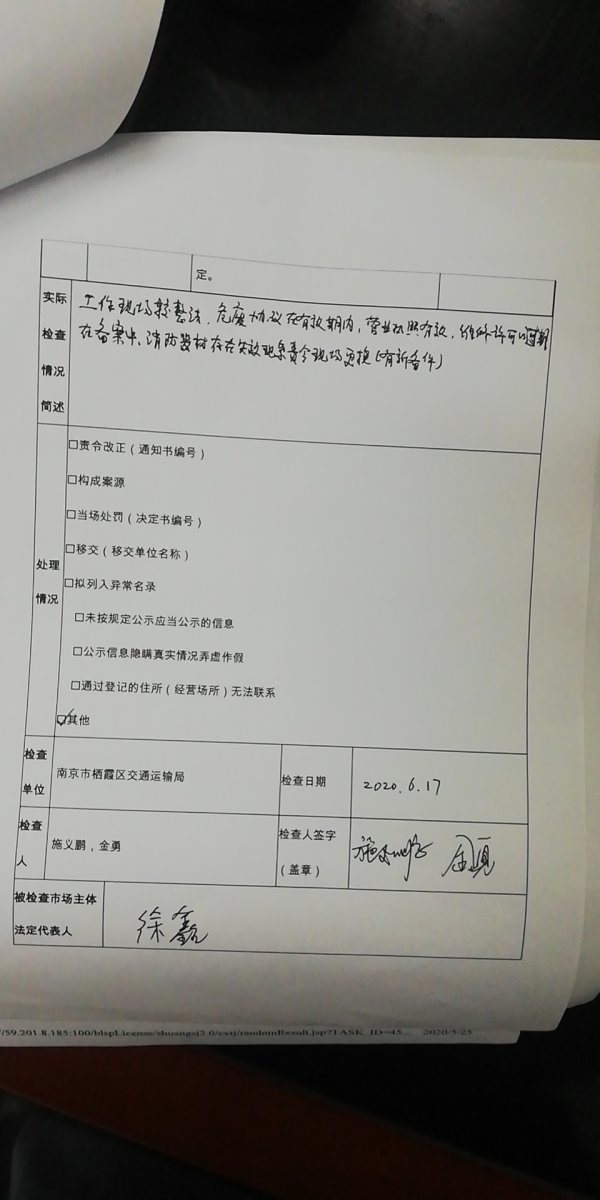 定。
实际
检查
情况
简述
工作现场较整洁、危废协议在有效期内,营业执照有效,维修许可以过期
在备案中、消防器材存在失效现象责令现场更换(有新备件)
处理
情况
□责令改正(通知书编号)
□构成案源
□当场处罚(决定书编号)
□移交(移交单位名称)
□拟列入异常名录
□未按规定公示应当公示的信息
□公示信息隐瞒真实情况弄虚作假
□通过登记的住所(经营场所)无法联系
☑其他
检查
单位
南京市栖霞区交通运输局
检查日期
2020.6.17
检查
人
施义鹏,金勇
检查人签字
(盖章)
施义鹏 金勇
被检查市场主体
法定代表人
徐鑫
/59.201.8.185:100/blspLicense/shuangsj2.0/cxtj/randomResult.jsp?TASK_ID=45... 2020/5/25